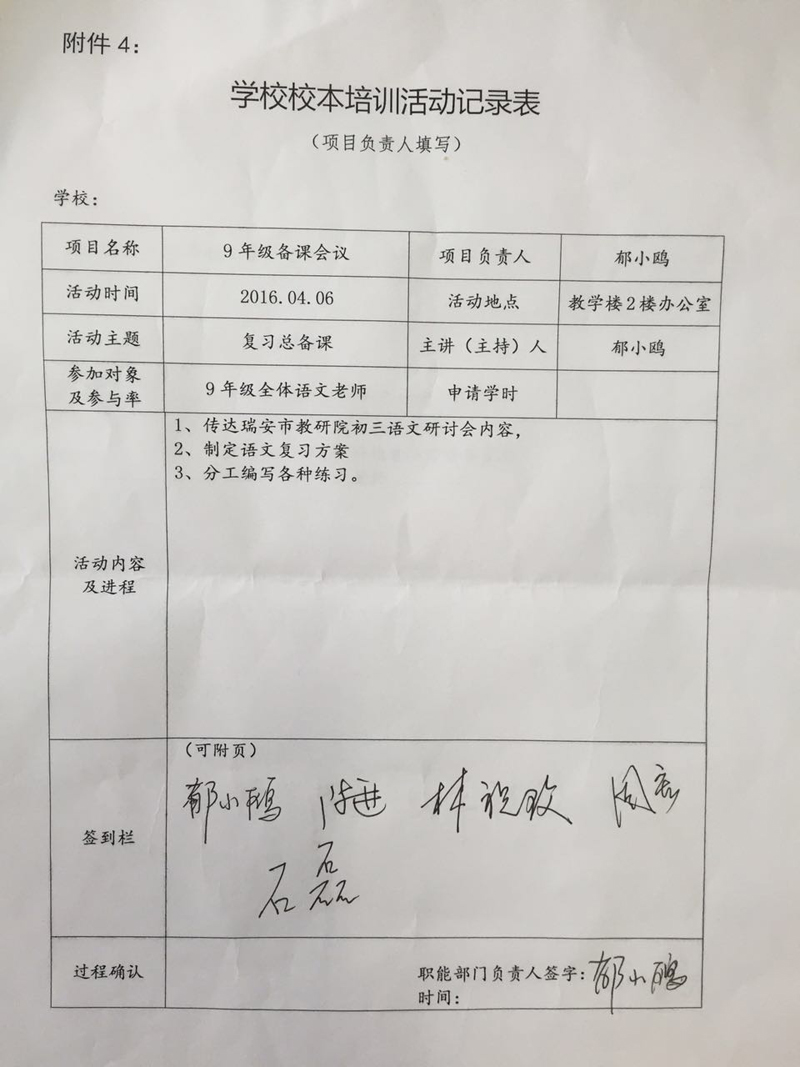 附件 4：
学校校本培训活动记录表
（项目负责人填写）
学校：
项目名称 9 年级备课会议 项目负责人 郁小鸥
活动时间 2016.04.06 活动地点 教学楼 2 楼办公室
活动主题 复习总备课 主讲（主持）人 郁小鸥
参加对象
及参与率 9 年级全体语文老师 申请学时
1、传达瑞安市教研院初三语文研讨会内容，
2、制定语文复习方案
3、分工编写各种练习。
活动内容
及进程
（可附页）
郁小鸥 林 周
签到栏
石磊
过程确认 职能部门负责人签字：郁小鸥
时间：